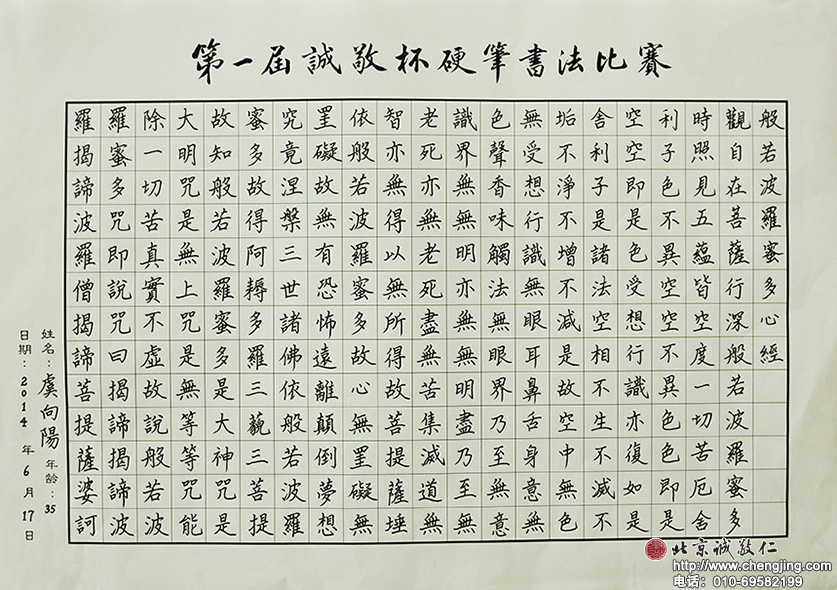 第一届誠敬杯硬筆書法比賽
般若波羅蜜多心經
觀自在菩薩行深般若波羅蜜多
時照見五蘊皆空度一切苦厄舍
利子色不異空空不異色色即是
空空即是色受想行識亦復如是
舍利子是諸法空相不生不滅不
垢不淨不增不減是故空中無色
無受想行識無眼耳鼻舌身意無
色聲香味觸法無眼界乃至無意
識界無無明亦無無明盡乃至無
老死亦無老死盡無苦集滅道無
智亦無得以無所得故菩提薩埵
依般若波羅蜜多故心無罣礙無
罣礙故無有恐怖遠離顛倒夢想
究竟涅槃三世諸佛依般若波羅
蜜多故得阿耨多羅三藐三菩提
故知般若波羅蜜多是大神咒是
大明咒是無上咒是無等等咒能
除一切苦真實不虛故說般若波
羅蜜多咒即說咒曰揭諦揭諦波
羅揭諦波羅僧揭諦菩提薩婆訶
姓名：虞向陽 年龄：35
日期：2014年6月17日
北京诚敬仁
http://www.chengjing.com
电话：010-69582199